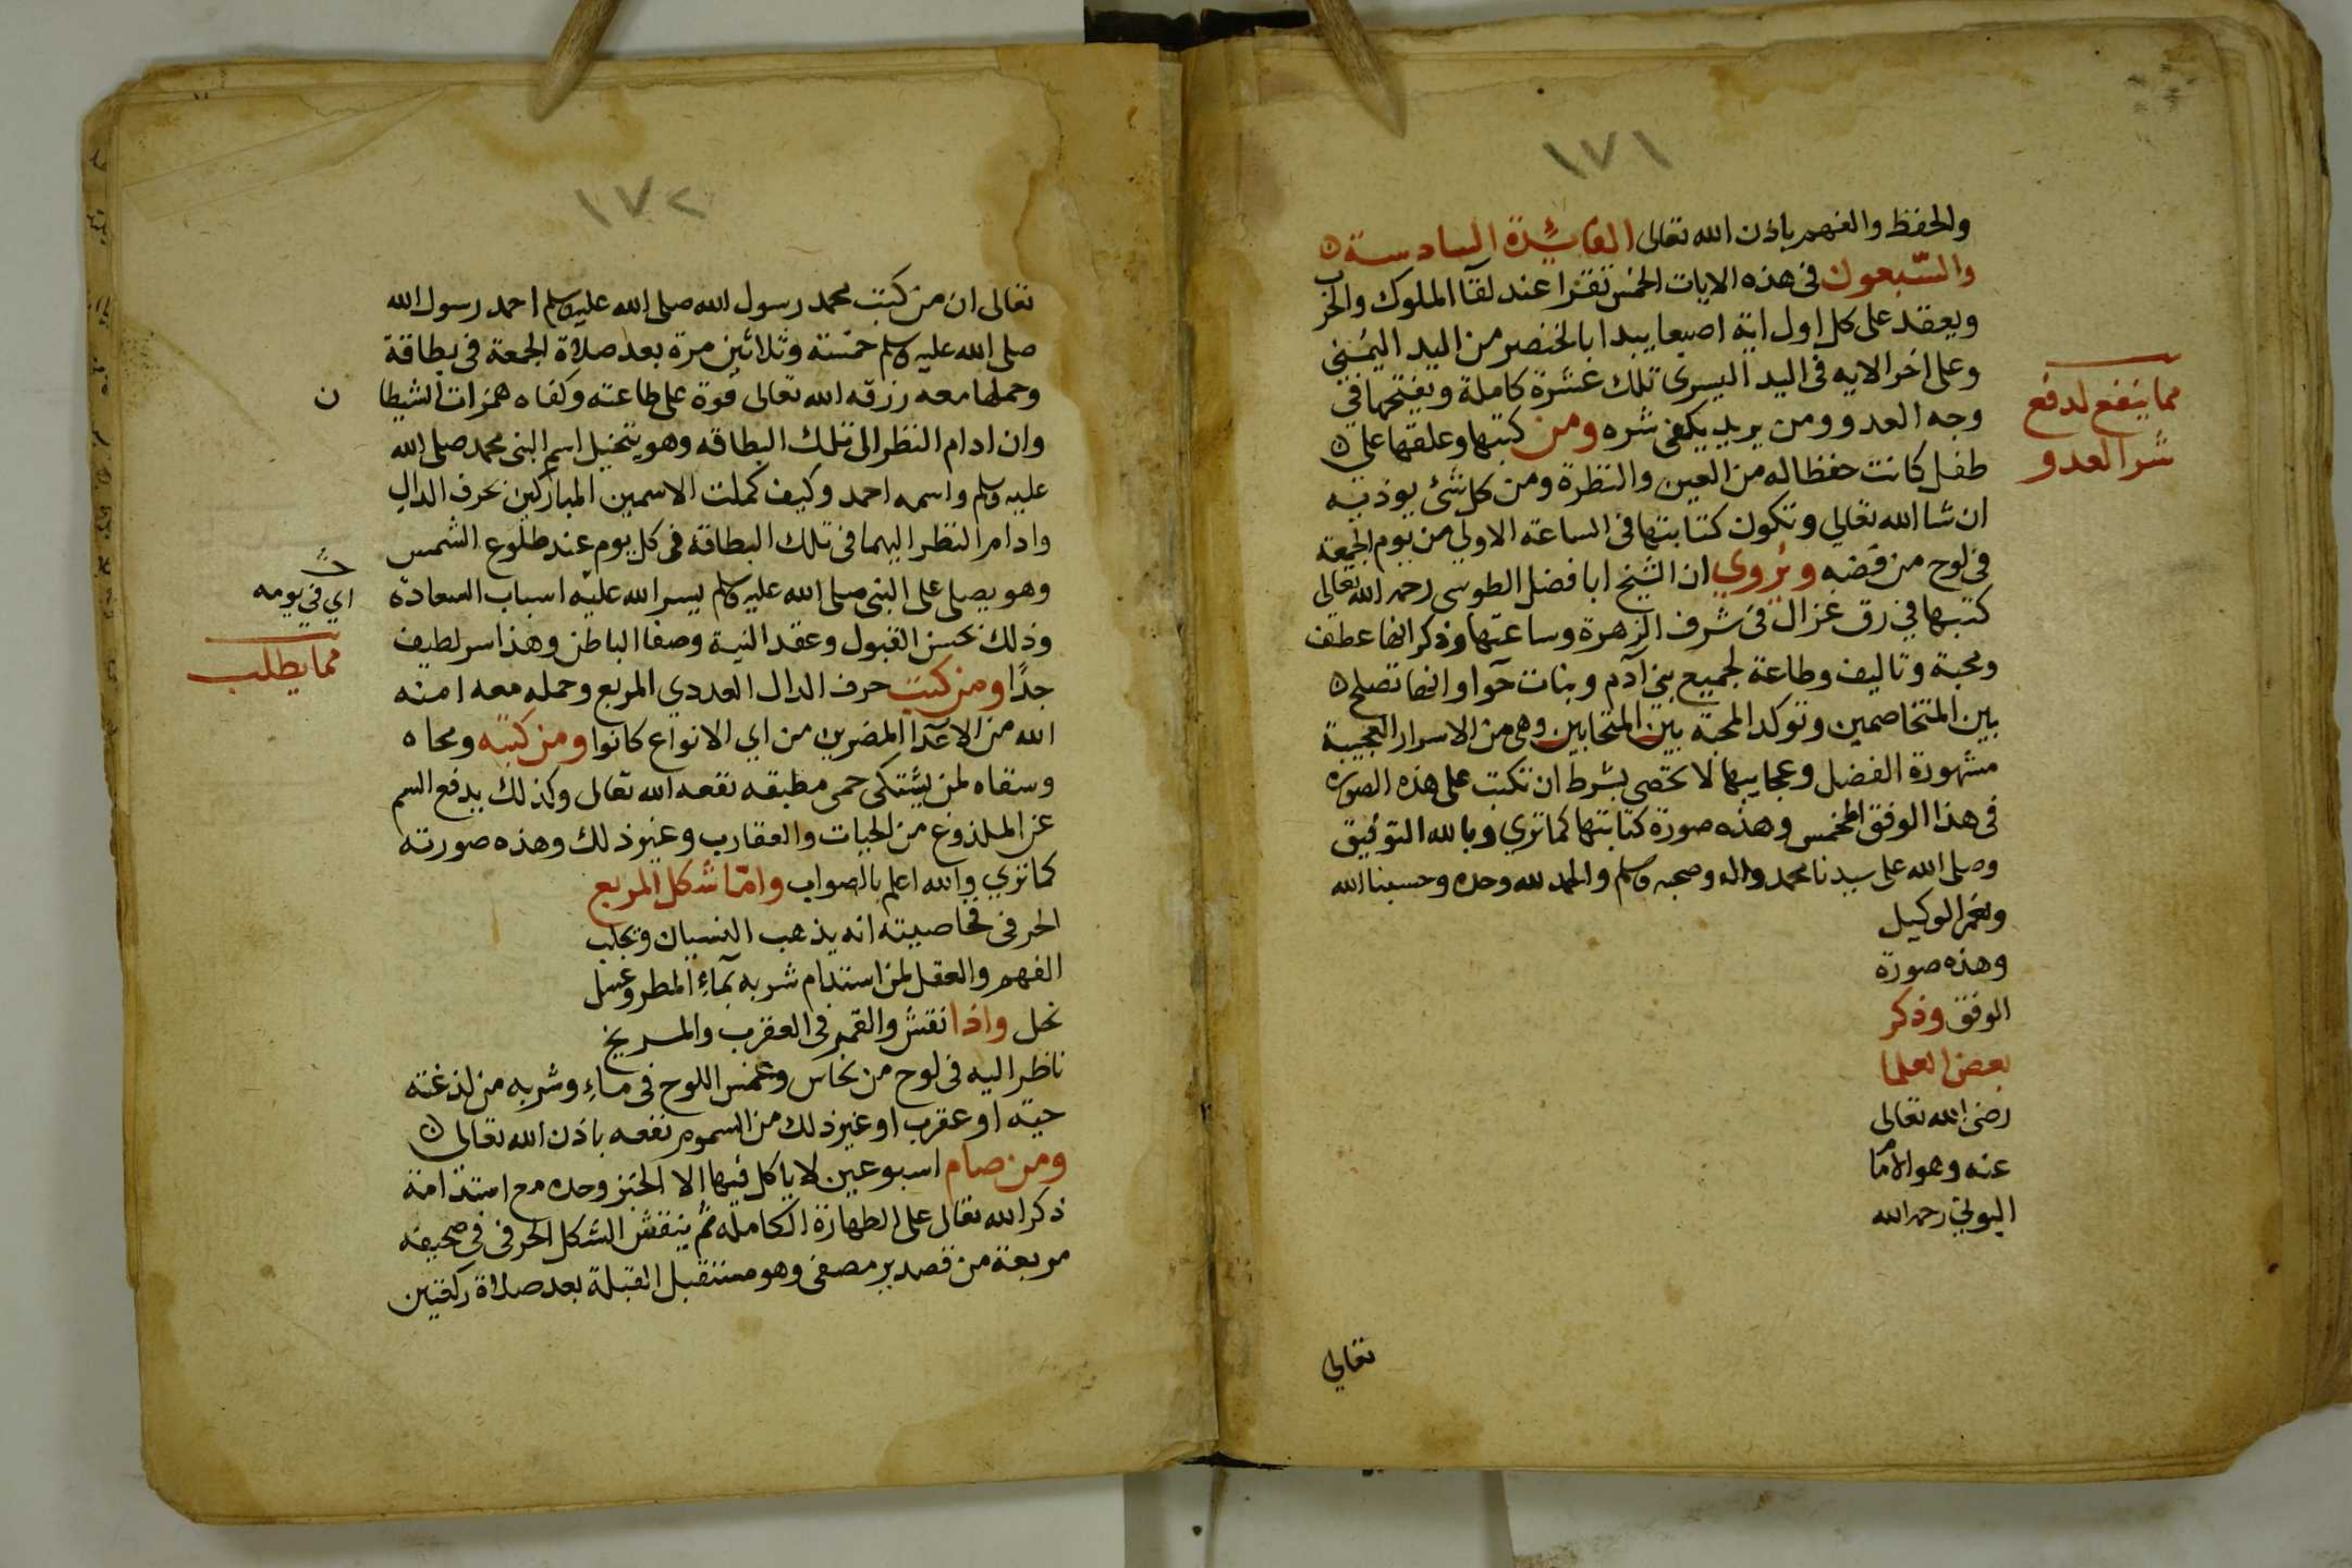 ١٧١
والحفظ والفهم باذن الله تعالى الفائدة السادسة
والسبعون فى هذه الايات الخمس تقرا عند لقآ الملوك والحرب
ويعقد على كل اول اية اصبعا يبدا بالخنصر من اليد اليمنى
وعلى اخر الايه فى اليد اليسرى تلك عشرة كاملة ويفتحها فى
وجه العدو ومن يريد يكفى شره ومن كتبها وعلقها على
طفل كانت حفظا له من العين والنظرة ومن كل شئ يوذيه
ان شا الله تعالى وتكون كتابتها فى الساعة الاولى من يوم الجمعة
فى لوح من فضه ويروي ان الشيخ ابا فضل الطوسى رحمه الله تعالى
كتبها في رق غزال فى شرف الزهرة وساعتها وذكر انها عطف
ومحبة وتاليف وطاعة لجميع بنى آدم وبنات حوا وانها تصلح
بين المتخاصمين وتوكد المحبة بين المتحابين وهى من الاسرار العجيبة
مشهورة الفضل وعجايبها لا تحصى بشرط ان تكتب على هذه الصوره
فى هذا الوفق المخمس وهذه صورة كتابتها كما تري وبالله التوفيق
وصلى الله على سيدنا محمد واله وصحبه وسلم والحمد لله وحده وحسبنا الله
ونعم الوكيل
وهذه صورة
الوفق وذكر
بعض العلما
رضى الله تعالى
عنه وهو الامام
البوني رحمه الله
تعالى
مما ينفع لدفع
شر العدو
١٧٢
تعالى ان من كتب محمد رسول الله صلى الله عليه وسلم احمد رسول الله
صلى الله عليه وسلم خمسة وثلاثين مرة بعد صلاة الجمعة فى بطاقة
وحملها معه رزقه الله تعالى قوة على طاعته وكفاه همزات الشيطا ن
وان ادام النظر الى تلك البطاقه وهو يتخيل اسم النبى محمد صلى الله
عليه وسلم واسمه احمد وكيف كملت الاسمين المباركين بحرف الدال
وادام النظر اليهما فى تلك البطاقة فى كل يوم عند طلوع الشمس
وهو يصلى على النبى صلى الله عليه وسلم يسر الله عليه اسباب السعادة
وذلك بحسن القبول وعقد النية وصفا الباطن وهذا سر لطيف
جدًا ومن كتب حرف الدال العددي المربع وحمله معه امنه
الله من الاعدآ المضرين من اي الانواع كانوا ومن كتبه ومحاه
وسقاه لمن يشتكى حمى مطبقه نفعه الله تعالى وكذلك يدفع السم
عن الملذوغ من الحيات والعقارب وغير ذلك وهذه صورته
كما تري والله اعلم بالصواب واما شكل المربع
الحرفى فخاصيته انه يذهب النسيان ويجلب
الفهم والعقل لمن استدام شربه بمآء المطر وعسل
نحل واذا نقش والقمر فى العقرب والمريخ
ناظر اليه فى لوح من نحاس وغمس اللوح فى ماء وشربه من لذغته
حيته او عقرب او غير ذلك من السموم نفعه باذن الله تعالى
ومن صام اسبوعين لا ياكل فيها إلا الخبز وحده مع استدامة
ذكر الله تعالى على الطهارة الكامله ثم ينقش الشكل الحرفى فى صحيفة
مربعة من قصدير مصفى وهو مستقبل القبلة بعد صلاة ركعتين
اي في يومه
مما يطلب